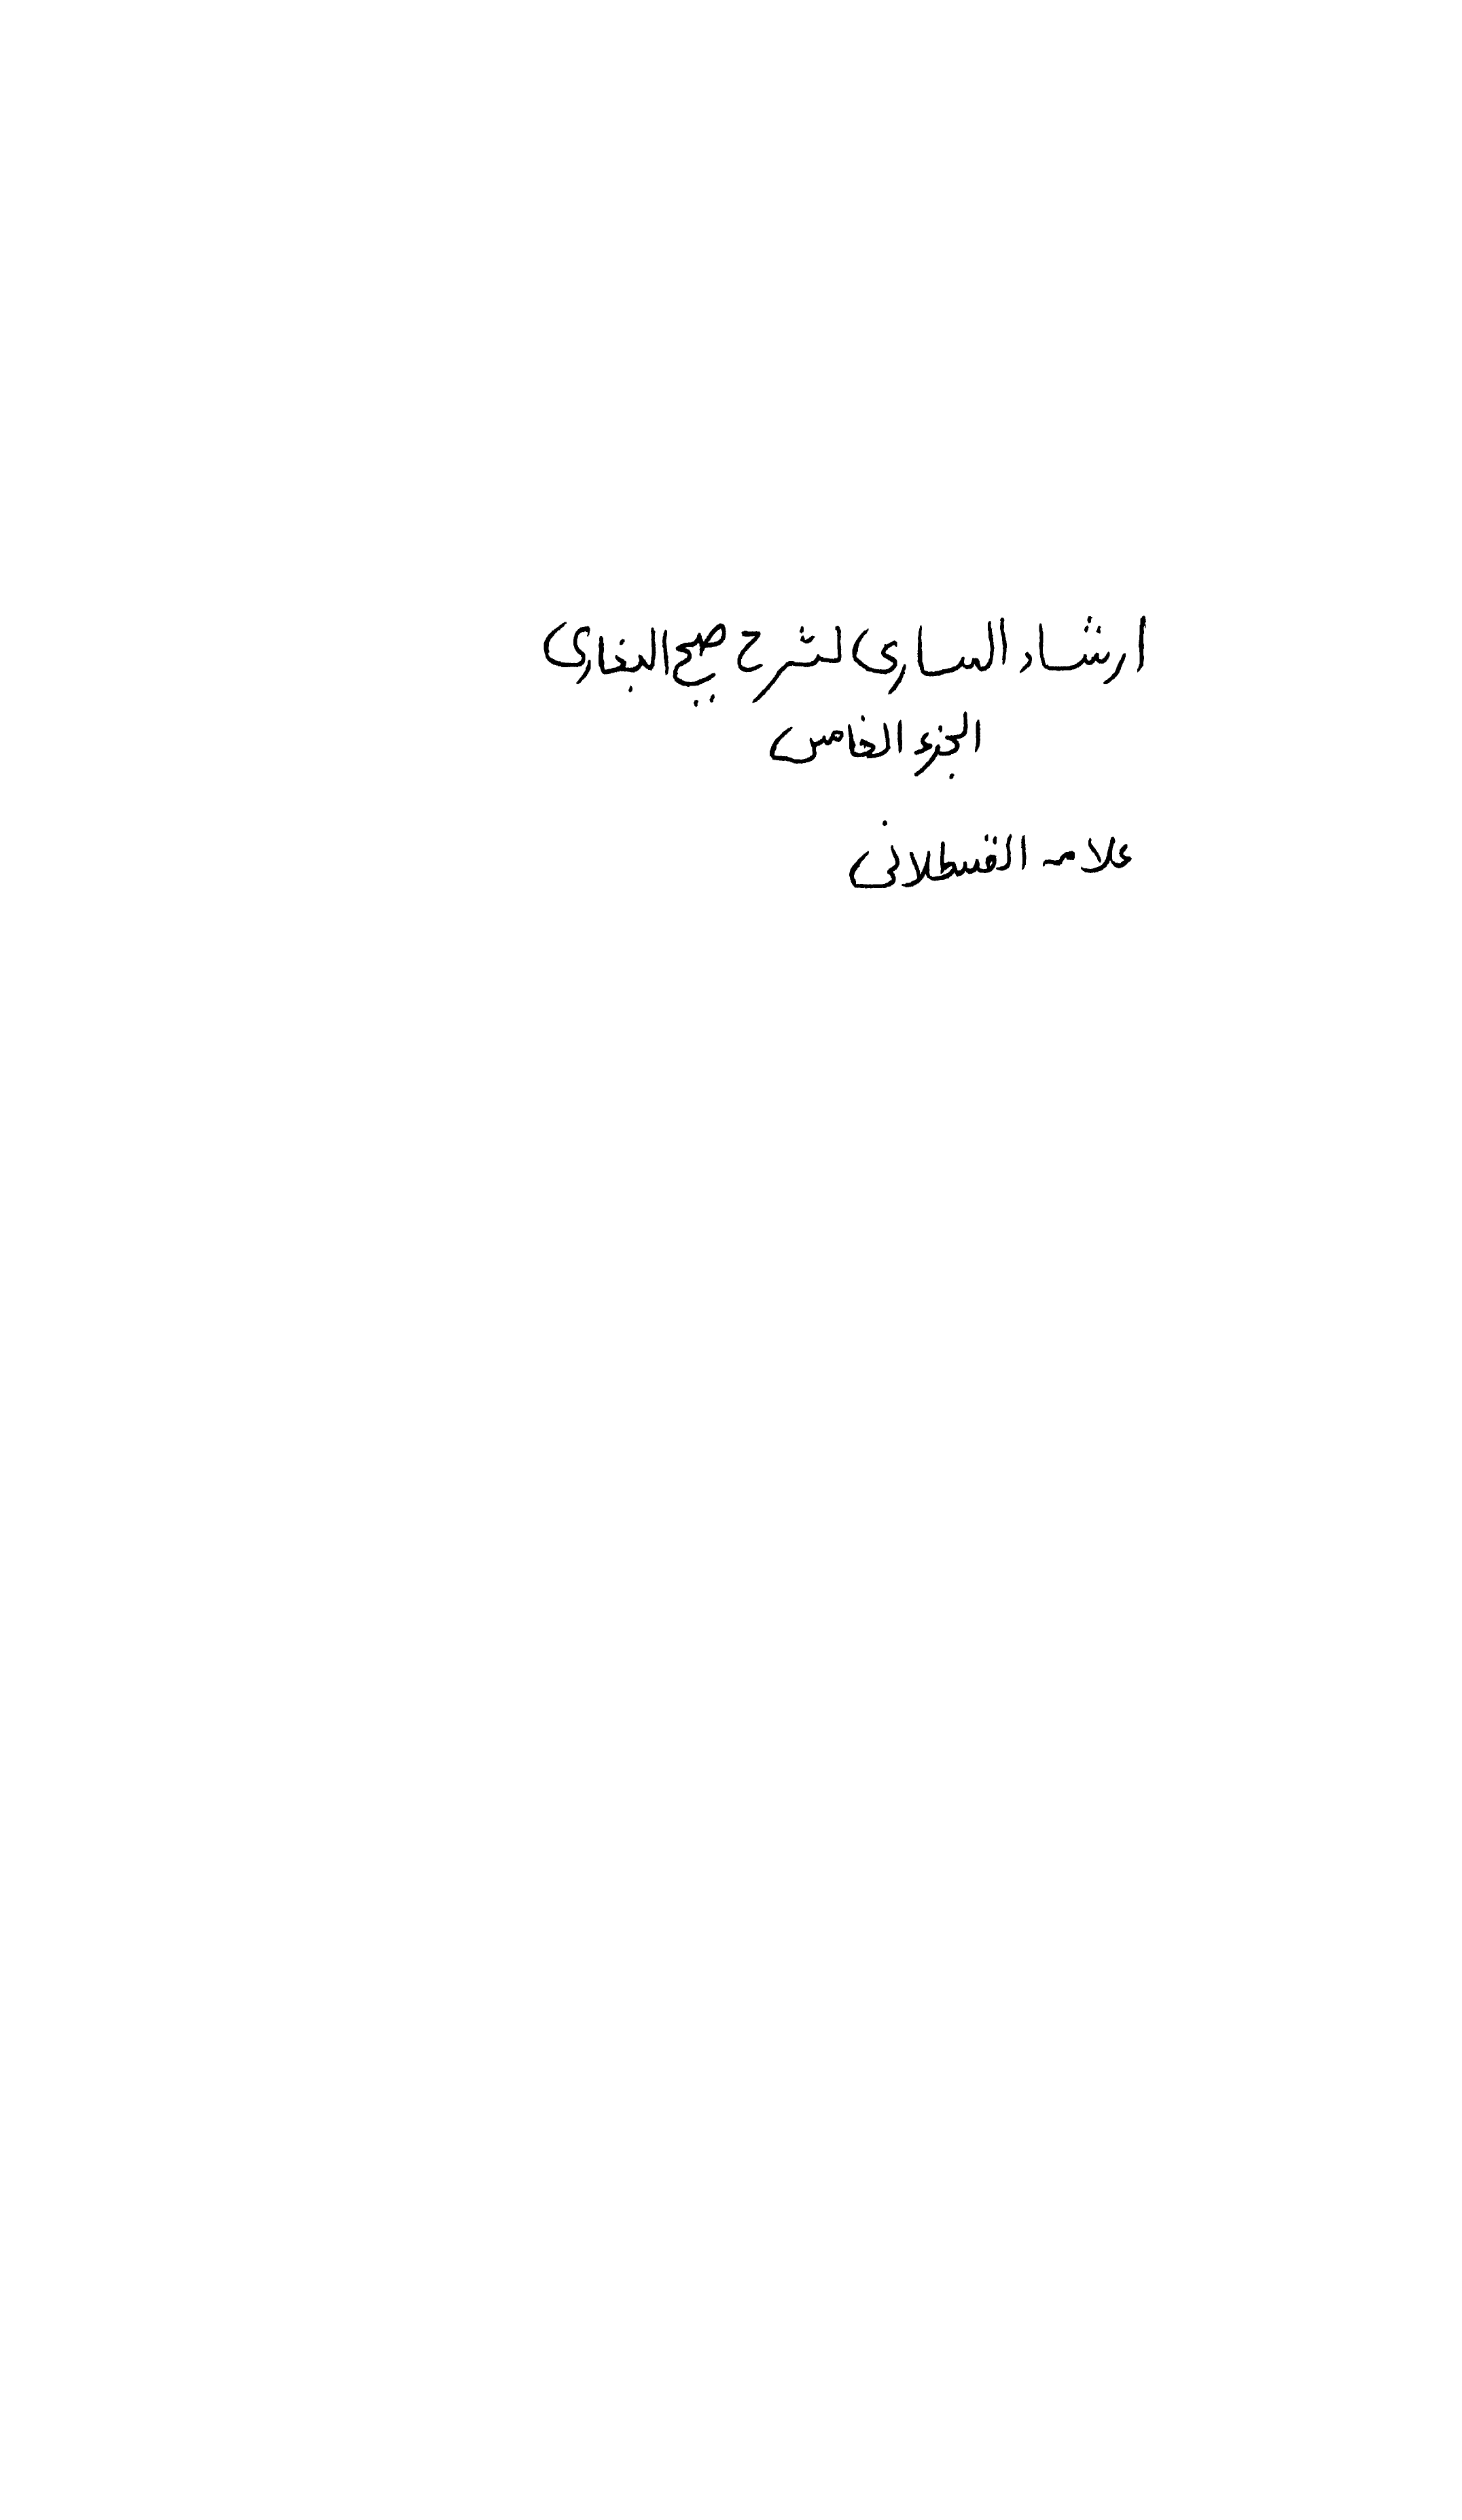 ارشاد الساری لشرح صحیح البخاری
الجزء الخامس
علامه القسطلانی